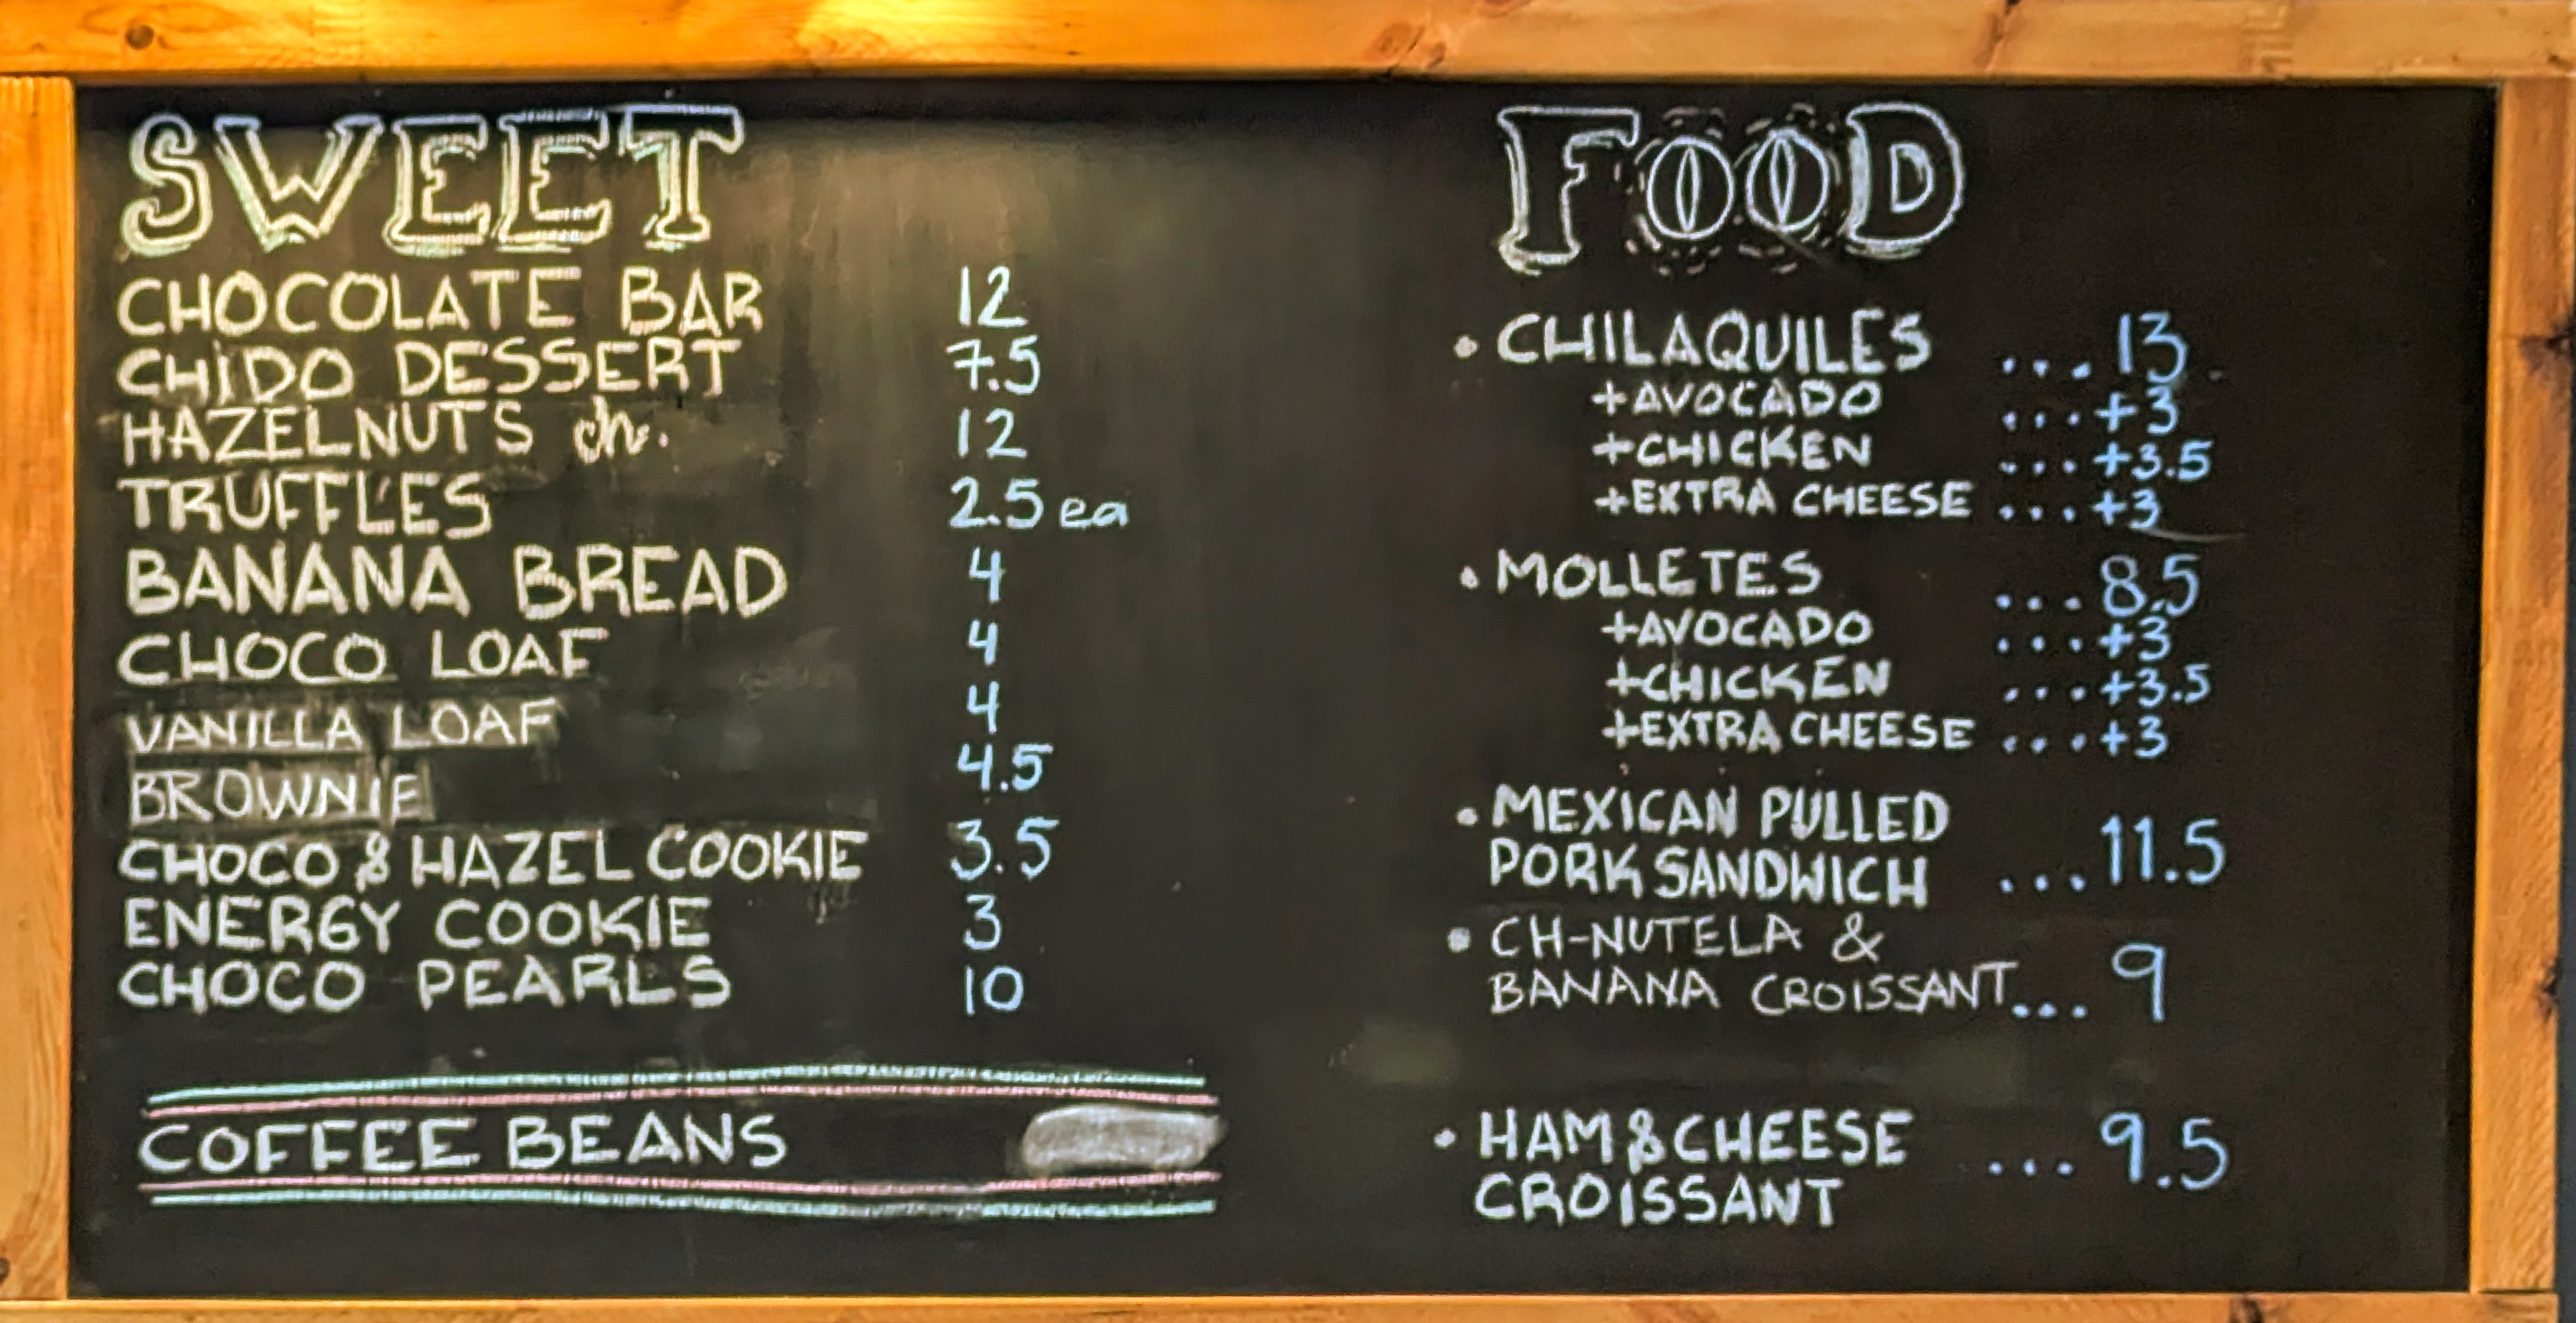 SWEET
CHOCOLATE BAR 12
CHIDO DESSERT 7.5
HAZELNUTS ch. 12
TRUFFLES 2.5 ea
BANANA BREAD 4
CHOCO LOAF 4
VANILLA LOAF 4
BROWNIE 4.5
CHOCO & HAZEL COOKIE 3.5
ENERGY COOKIE 3
CHOCO PEARLS 10
COFFEE BEANS
FOOD
• CHILAQUILES ... 13
+AVOCADO ... +3
+CHICKEN ... +3.5
+EXTRA CHEESE ... +3
• MOLLETES ... 8.5
+AVOCADO ... +3
+CHICKEN ... +3.5
+EXTRA CHEESE ... +3
• MEXICAN PULLED
PORK SANDWICH ... 11.5
• CH-NUTELA &
BANANA CROISSANT... 9
• HAM & CHEESE ... 9.5
CROISSANT